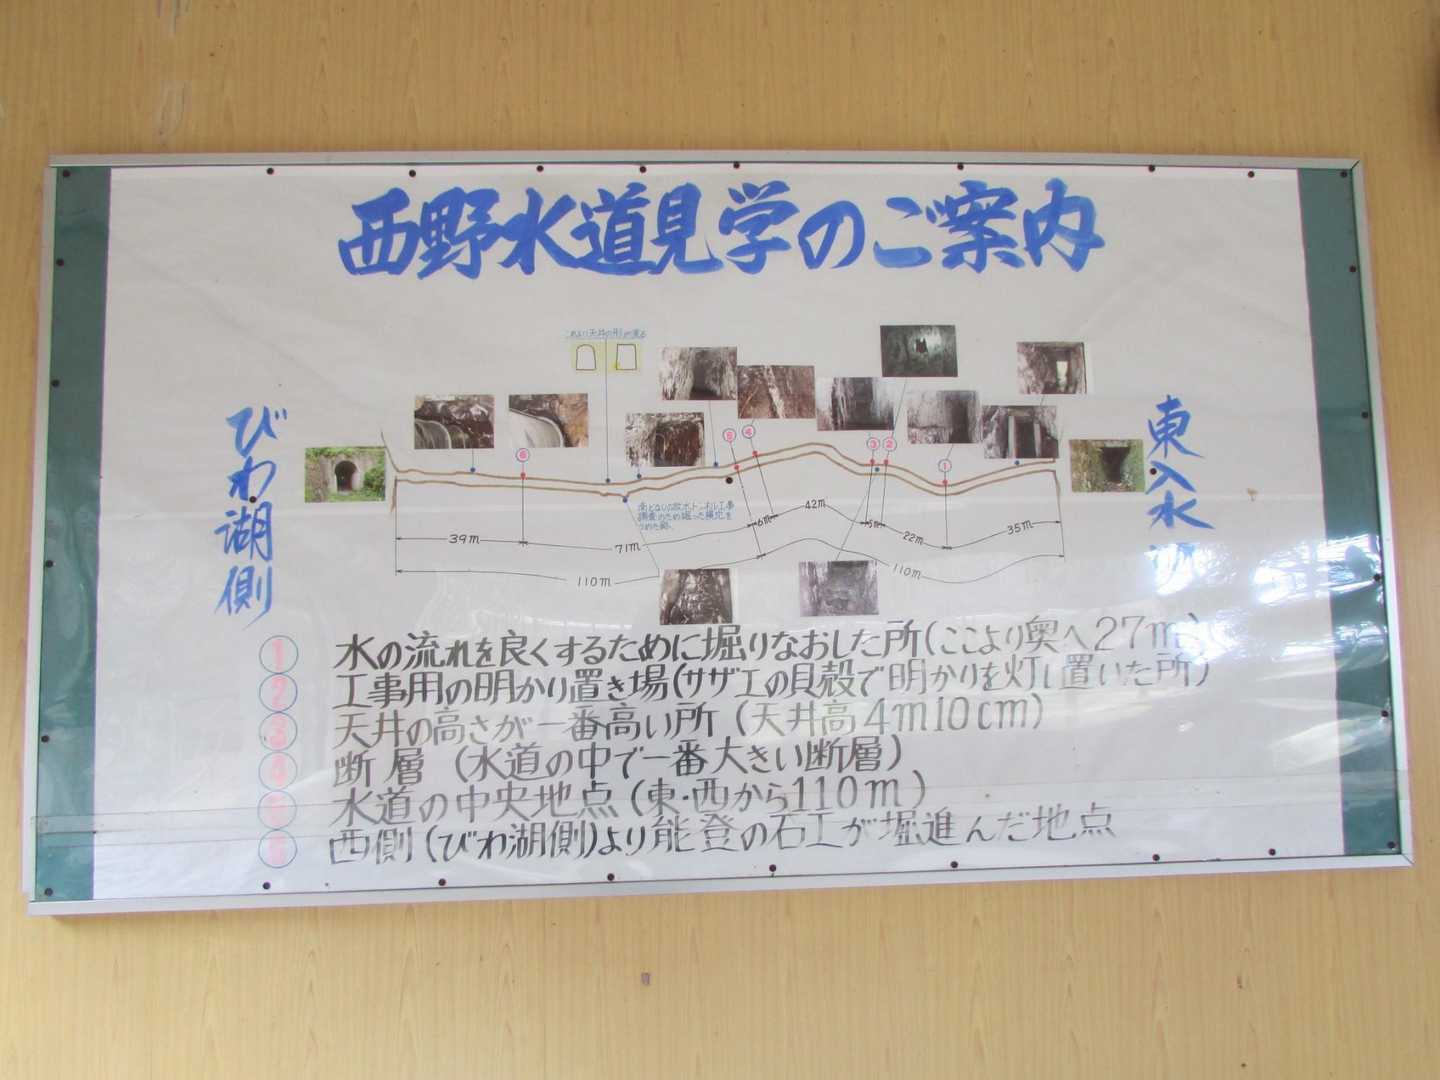 西野水道見学のご案内
これより天井の形が変る
びわ湖側
東入水
⑥
⑤
④
③
②
①
39m
71m
6m
42m
5m
22m
35m
110m
110m
① 水の流れを良くするために堀りなおした所(ここより奥へ27m)
② 工事用の明かり置き場(サザエの貝殻で明かりを灯し置いた所)
③ 天井の高さが一番高い所(天井高4m10cm)
④ 断層(水道の中で一番大きい断層)
⑤ 水道の中央地点(東・西から110m)
⑥ 西側(びわ湖側)より能登の石工が堀進んだ地点